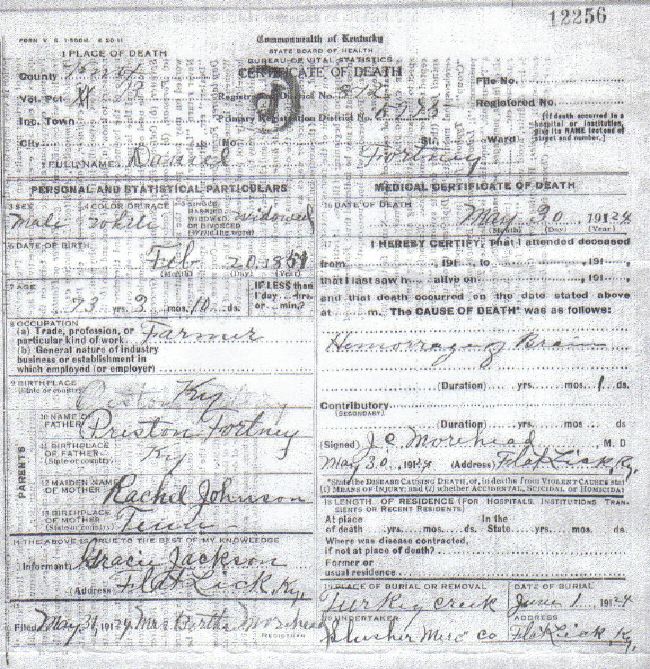 12256
FORM V. S. 
Commonwealth of Kentucky
STATE BOARD OF HEALTH
BUREAU OF VITAL STATISTICS
CERTIFICATE OF DEATH
1 PLACE OF DEATH
County Knox
Vot. Pct.
Inc. Town
City
No.
St.
Ward
Registration District No. 812
Primary Registration District No.
File No.
Registered No.
[If death occurred in a
hospital or institution,
give its NAME instead of
street and number.]
2 FULL NAME Daniel Fortney
PERSONAL AND STATISTICAL PARTICULARS
3 SEX
Male
4 COLOR OR RACE
White
5 SINGLE
MARRIED
WIDOWED
OR DIVORCED
(Write the word)
Widowed
6 DATE OF BIRTH
Feb 20 1851
(Month) (Day) (Year)
7 AGE
73 yrs. 3 mos. 10 ds.
IF LESS than
1 day ... hrs.
or ... min.?
8 OCCUPATION
(a) Trade, profession, or
particular kind of work
Farmer
(b) General nature of industry
business or establishment in
which employed (or employer)
9 BIRTHPLACE
(State or country)
Ky
PARENTS
10 NAME OF
FATHER
Preston Fortney
11 BIRTHPLACE
OF FATHER
(State or country)
Ky
12 MAIDEN NAME
OF MOTHER
Rachel Johnson
13 BIRTHPLACE
OF MOTHER
(State or country)
Tenn
14 THE ABOVE IS TRUE TO THE BEST OF MY KNOWLEDGE
(Informant) Gracy Jackson
(Address) Flat Lick, Ky.
15
Filed May 31, 1924 Mrs Bertha Morehead
REGISTRAR
MEDICAL CERTIFICATE OF DEATH
16 DATE OF DEATH
May 30 1924
(Month) (Day) (Year)
17 I HEREBY CERTIFY, that I attended deceased
from, 191 to, 191,
that I last saw h alive on, 191,
and that death occurred on the date stated above
at m. The CAUSE OF DEATH* was as follows:
Hemorrage of Brain
(Duration) yrs. mos. 1 ds.
Contributory
(SECONDARY)
(Duration) yrs. mos. ds.
(Signed) J. C. Morehead, M. D
May 30, 1924 (Address) Flat Lick, Ky.
*State the DISEASE CAUSING DEATH, or, in deaths from VIOLENT CAUSES state
(1) MEANS OF INJURY; and (2) whether ACCIDENTAL, SUICIDAL or HOMICIDAL
18 LENGTH OF RESIDENCE (FOR HOSPITALS, INSTITUTIONS, TRAN-
SIENTS OR RECENT RESIDENTS)
At place
of death yrs. mos. ds.
In the
State yrs. mos. ds.
Where was disease contracted,
if not at place of death?
Former or
usual residence
19 PLACE OF BURIAL OR REMOVAL
Turkey Creek
DATE OF BURIAL
June 1 1924
20 UNDERTAKER
Slusher Merc Co
ADDRESS
Flat Lick, Ky.